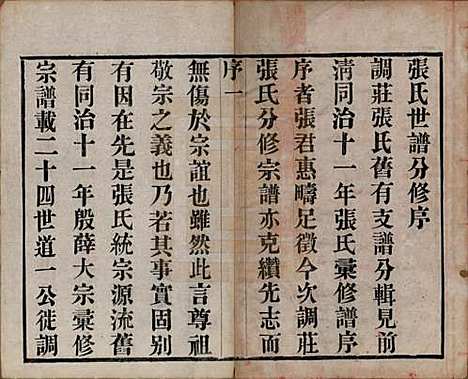 張氏世譜分修序
調莊張氏舊有支譜分輯見前
清同治十一年張氏彙修譜序
序者張君惠疇足徵今次調莊
張氏分修宗譜亦克纘先志而
序一
無傷於宗誼也雖然此言尊祖
敬宗之義也乃若其事實固別
有因在先是張氏統宗源流舊
有同治十一年殷薛大宗彙修
宗譜載二十四世道一公徙調